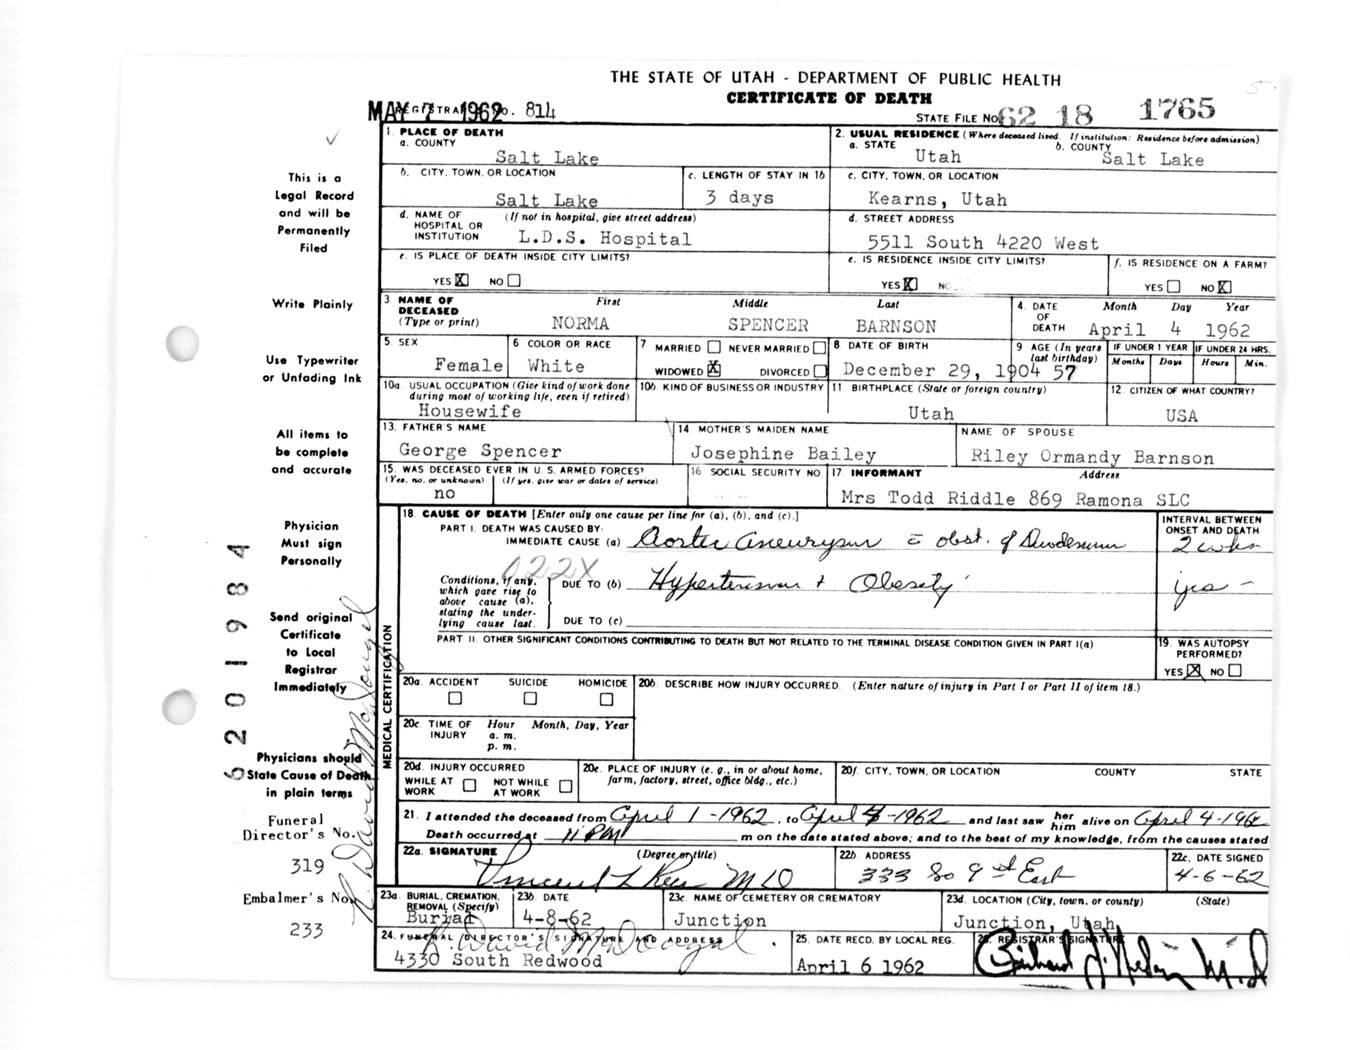 THE STATE OF UTAH - DEPARTMENT OF PUBLIC HEALTH
CERTIFICATE OF DEATH
MAY 7 1962
REGISTRAR'S NO. 814
STATE FILE NO. 62 18 1765
1. PLACE OF DEATH
a. COUNTY
Salt Lake
2. USUAL RESIDENCE (Where deceased lived. If institution: Residence before admission)
a. STATE b. COUNTY
Utah Salt Lake
b. CITY, TOWN, OR LOCATION
Salt Lake
c. LENGTH OF STAY IN 1b
3 days
c. CITY, TOWN, OR LOCATION
Kearns, Utah
d. NAME OF HOSPITAL OR INSTITUTION (If not in hospital, give street address)
L.D.S. Hospital
d. STREET ADDRESS
5511 South 4220 West
e. IS PLACE OF DEATH INSIDE CITY LIMITS?
YES X NO
e. IS RESIDENCE INSIDE CITY LIMITS?
YES X NO
f. IS RESIDENCE ON A FARM?
YES NO X
3 NAME OF DECEASED (Type or print)
First Middle Last
NORMA SPENCER BARNSON
4. DATE OF DEATH
Month Day Year
April 4 1962
5 SEX
Female
6 COLOR OR RACE
White
7 MARRIED NEVER MARRIED
WIDOWED X DIVORCED
8 DATE OF BIRTH
December 29, 1904
9 AGE (In years last birthday)
57
IF UNDER 1 YEAR
Months Days
IF UNDER 24 HRS.
Hours Min.
10a. USUAL OCCUPATION (Give kind of work done during most of working life, even if retired)
Housewife
10b KIND OF BUSINESS OR INDUSTRY
11 BIRTHPLACE (State or foreign country)
Utah
12 CITIZEN OF WHAT COUNTRY?
USA
13. FATHER'S NAME
George Spencer
14 MOTHER'S MAIDEN NAME
Josephine Bailey
NAME OF SPOUSE
Riley Ormandy Barnson
15. WAS DECEASED EVER IN U. S. ARMED FORCES?
(Yes, no, or unknown) (If yes, give war or dates of service)
no
16 SOCIAL SECURITY NO.
17 INFORMANT Address
Mrs Todd Riddle 869 Ramona SLC
18. CAUSE OF DEATH [Enter only one cause per line for (a), (b), and (c).]
PART I. DEATH WAS CAUSED BY:
IMMEDIATE CAUSE (a) Aortic Aneurysm c̄ obst. of Duodenum
INTERVAL BETWEEN ONSET AND DEATH
2 wks
022X
Conditions, if any, which gave rise to above cause (a), stating the underlying cause last.
DUE TO (b) Hypertension + Obesity
yrs -
DUE TO (c)
PART II. OTHER SIGNIFICANT CONDITIONS CONTRIBUTING TO DEATH BUT NOT RELATED TO THE TERMINAL DISEASE CONDITION GIVEN IN PART I(a)
19. WAS AUTOPSY PERFORMED?
YES X NO
MEDICAL CERTIFICATION
20a. ACCIDENT SUICIDE HOMICIDE
20b. DESCRIBE HOW INJURY OCCURRED. (Enter nature of injury in Part I or Part II of item 18.)
20c. TIME OF INJURY Hour Month, Day, Year
a. m.
p. m.
20d. INJURY OCCURRED
WHILE AT WORK NOT WHILE AT WORK
20e. PLACE OF INJURY (e. g., in or about home, farm, factory, street, office bldg., etc.)
20f. CITY, TOWN, OR LOCATION COUNTY STATE
21. I attended the deceased from April 1-1962, to April 4-1962 and last saw her him alive on April 4-1962
Death occurred at 11 PM m on the date stated above; and to the best of my knowledge, from the causes stated
22a. SIGNATURE (Degree or title)
Vincent L Rees MD
22b. ADDRESS
333 So 9th East
22c. DATE SIGNED
4-6-62
23a. BURIAL, CREMATION, REMOVAL (Specify)
Burial
23b. DATE
4-8-62
23c. NAME OF CEMETERY OR CREMATORY
Junction
23d. LOCATION (City, town, or county) (State)
Junction, Utah
24. FUNERAL DIRECTOR'S SIGNATURE AND ADDRESS
R. David McDougal
4330 South Redwood
25. DATE RECD. BY LOCAL REG.
April 6 1962
26. REGISTRAR'S SIGNATURE
This is a
Legal Record
and will be
Permanently
Filed
Write Plainly
Use Typewriter
or Unfading Ink
All items to
be complete
and accurate
Physician
Must sign
Personally
Send original
Certificate
to Local
Registrar
Immediately
Physicians should
State Cause of Death
in plain terms
Funeral
Director's No.
319
Embalmer's No.
233
6201984
R. David McDougal